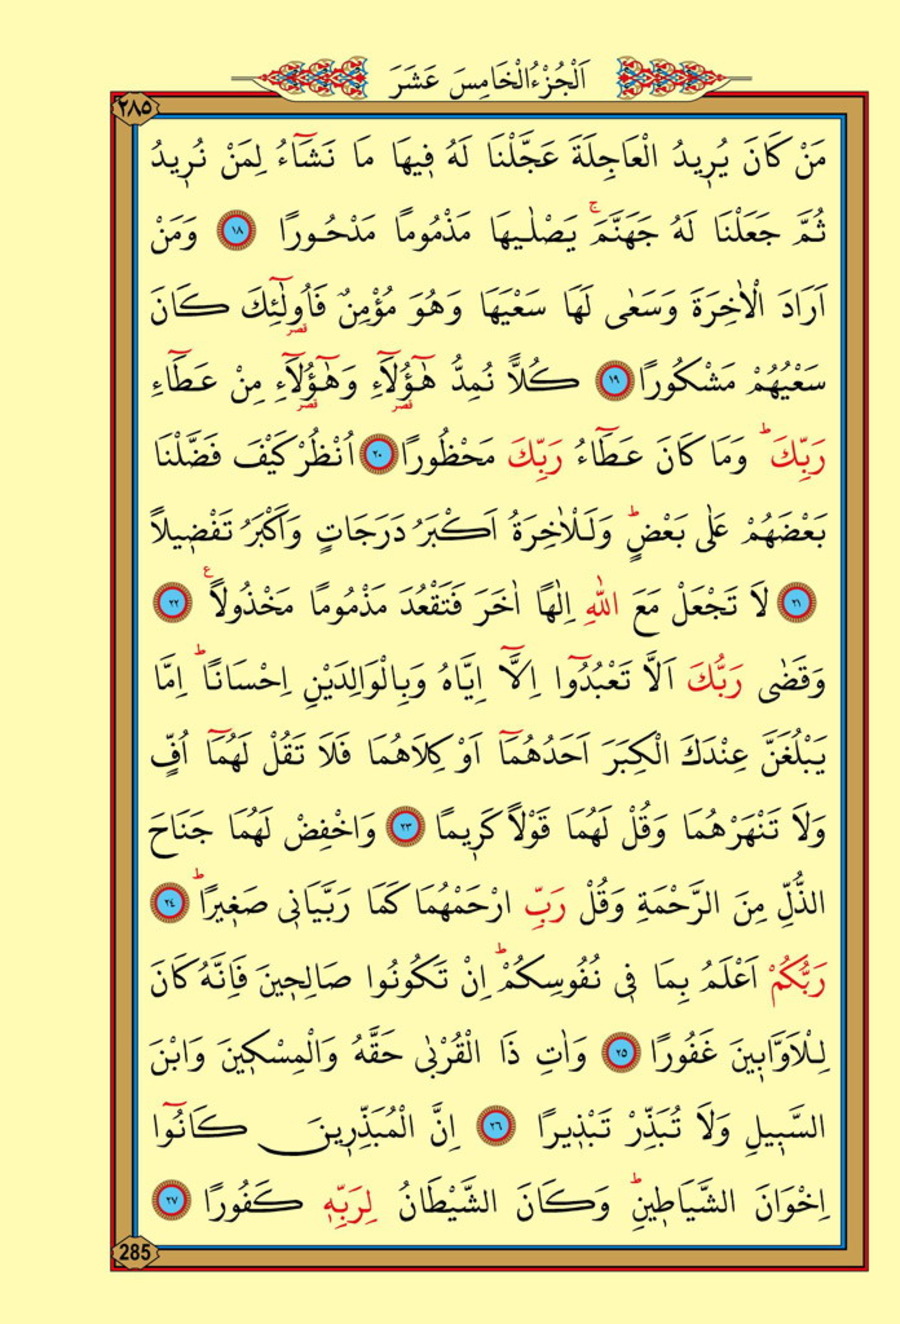 اَلْجُزْءُ الْخَامِسَ عَشَرَ
٢٨٥
مَنْ كَانَ يُرٖيدُ الْعَاجِلَةَ عَجَّلْنَا لَهُ فٖيهَا مَا نَشَٓاءُ لِمَنْ نُرٖيدُ
ثُمَّ جَعَلْنَا لَهُ جَهَنَّمَۚ يَصْلٰيهَا مَذْمُومًا مَدْحُورًا ﴿١٨﴾ وَمَنْ
اَرَادَ الْاٰخِرَةَ وَسَعٰى لَهَا سَعْيَهَا وَهُوَ مُؤْمِنٌ فَاُولٰٓئِكَ كَانَ
قصر
سَعْيُهُمْ مَشْكُورًا ﴿١٩﴾ كُلًّا نُمِدُّ هٰٓؤُ۬لَٓاءِ وَهٰٓؤُ۬لَٓاءِ مِنْ عَطَٓاءِ
قصر قصر
رَبِّكَؕ وَمَا كَانَ عَطَٓاءُ رَبِّكَ مَحْظُورًا ﴿٢٠﴾ اُنْظُرْ كَيْفَ فَضَّلْنَا
بَعْضَهُمْ عَلٰى بَعْضٍؕ وَلَلْاٰخِرَةُ اَكْبَرُ دَرَجَاتٍ وَاَكْبَرُ تَفْضٖيلًا
﴿٢١﴾ لَا تَجْعَلْ مَعَ اللّٰهِ اِلٰهًا اٰخَرَ فَتَقْعُدَ مَذْمُومًا مَخْذُولًاࣖ ﴿٢٢﴾
وَقَضٰى رَبُّكَ اَلَّا تَعْبُدُٓوا اِلَّٓا اِيَّاهُ وَبِالْوَالِدَيْنِ اِحْسَانًاؕ اِمَّا
يَبْلُغَنَّ عِنْدَكَ الْكِبَرَ اَحَدُهُمَٓا اَوْ كِلَاهُمَا فَلَا تَقُلْ لَهُمَٓا اُفٍّ
وَلَا تَنْهَرْهُمَا وَقُلْ لَهُمَا قَوْلًا كَرٖيمًا ﴿٢٣﴾ وَاخْفِضْ لَهُمَا جَنَاحَ
الذُّلِّ مِنَ الرَّحْمَةِ وَقُلْ رَبِّ ارْحَمْهُمَا كَمَا رَبَّيَانٖى صَغٖيرًاؕ ﴿٢٤﴾
رَبُّكُمْ اَعْلَمُ بِمَا فٖى نُفُوسِكُمْؕ اِنْ تَكُونُوا صَالِحٖينَ فَاِنَّهُ كَانَ
لِلْاَوَّابٖينَ غَفُورًا ﴿٢٥﴾ وَاٰتِ ذَا الْقُرْبٰى حَقَّهُ وَالْمِسْكٖينَ وَابْنَ
السَّبٖيلِ وَلَا تُبَذِّرْ تَبْذٖيرًا ﴿٢٦﴾ اِنَّ الْمُبَذِّرٖينَ كَانُٓوا
اِخْوَانَ الشَّيَاطٖينِؕ وَكَانَ الشَّيْطَانُ لِرَبِّهٖ كَفُورًا ﴿٢٧﴾
285